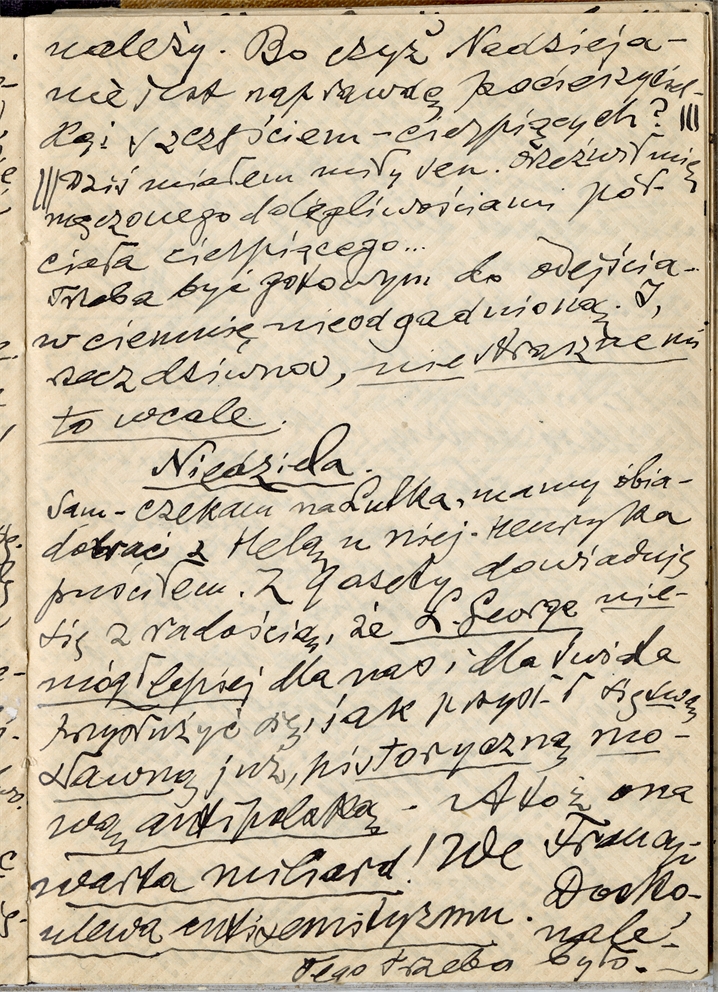 należy. Bo czyż Nadzieja-
nie jest naprawdę pocieszyciel-
ką i szczęściem - cierpiących? |||
||| Dziś miałem miły sen. Orzeźwił mię
męczonego dolegliwościami pół-
ciała cierpiącego...
Trzeba być gotowym do odejścia-
w ciemnię nieodgadnioną. I,
rzecz dziwna, nie straszne mi
to wcale.
Niedziela.
Sam - czekam na Lulka, mamy obia-
dować z Helą u niej. Henryka
puściłem. Z gazety dowiaduję
się z radością, że L. George nie-
mógł lepiej dla nas i dla świata
przysłużyć się, jak przysł- się swą
sławną już, historyczną mo-
wą antipolską - Atoż ona
warta miliard! We Francji
ulewa entuzjazmu.
Dosko-
nale!
Tego trzeba było. -